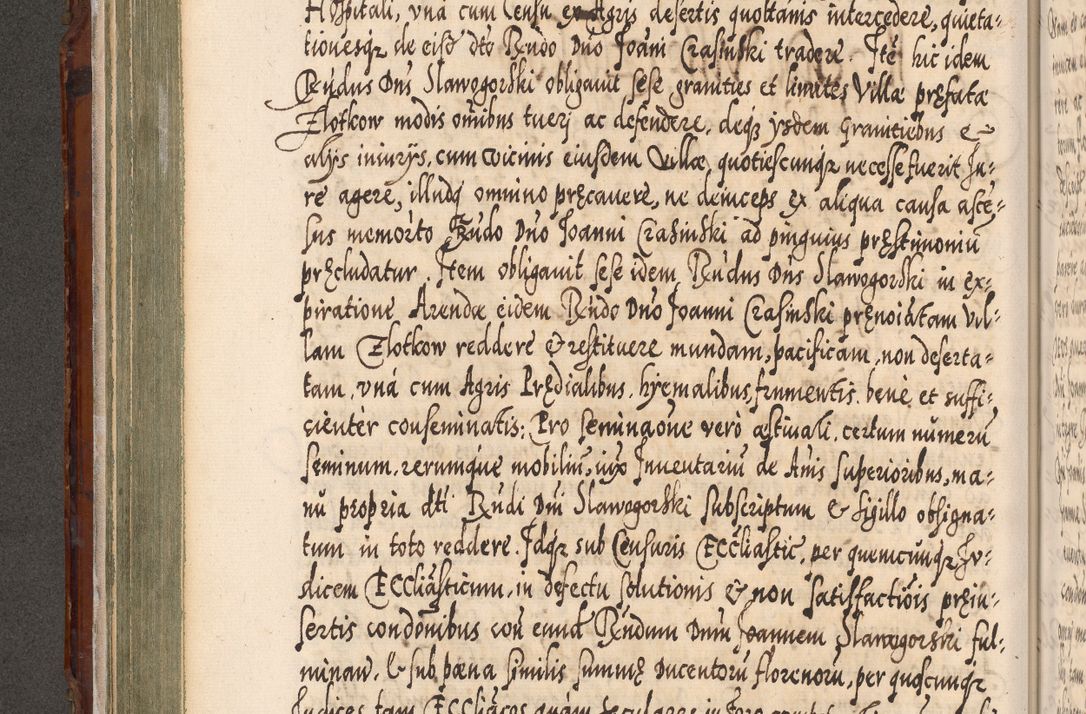 Hospitali, vná cum Censu ex Agris desertis quottanis intercedere, quieta-
tionesqz de eisd dto Rndo Dno Joani Crasinski tradere. Ité hic idem
Rndus Dns Slawogorski obligauit sese, granities et limites Villæ pręfatæ
Zlotkow modis omnibus tuerj ac defendere, deqz ysdem Granitiebus &
alijs iniurijs, cum vicinis eiusdem Villæ, quotiescunqz necesse fuerit Ju-
re agere, illudq omnino pręcauere, ne deinceps ex aliqua causa asce-
sus memorto Rndo Dno Joanni Crasinski ad pinguius pręstimoniũ
pręcludatur. Item obligauit sese idem Rndus Dns Slawogorski in ex-
piratione Arendæ eidem Rndo Dno Joanni Crasinski pręnoiatam Vil-
lam Zlotkow reddere & restituere mundam, pacificam, non deserta-
tam, vná cum Agris Prędialibus, hyemalibus, frumentis, bene et suffi-
cienter conseminatis: Pro seminaone verò æstiuali, certum numerũ
seminum, rerumque mobiliũ, iux Inuentariũ de Anis superioribus, ma-
nũ propria dti Rndi Dni Slawogorski subscriptum & sigillo obsigna-
tum in toto reddere. Idqz sub Censuris Eccliastic, per quemcunqz Ju-
dicem Eccliasticum, in defectu solutionis & non satisfactiois pręin-
sertis condonibus con eund Rndum Dnm Joannem Slawogorski ful-
minan, & sub pæna similis summę Ducentorũ florenorũ, per quoscunqz
Judices tam Eccliacos quam seculares in foro